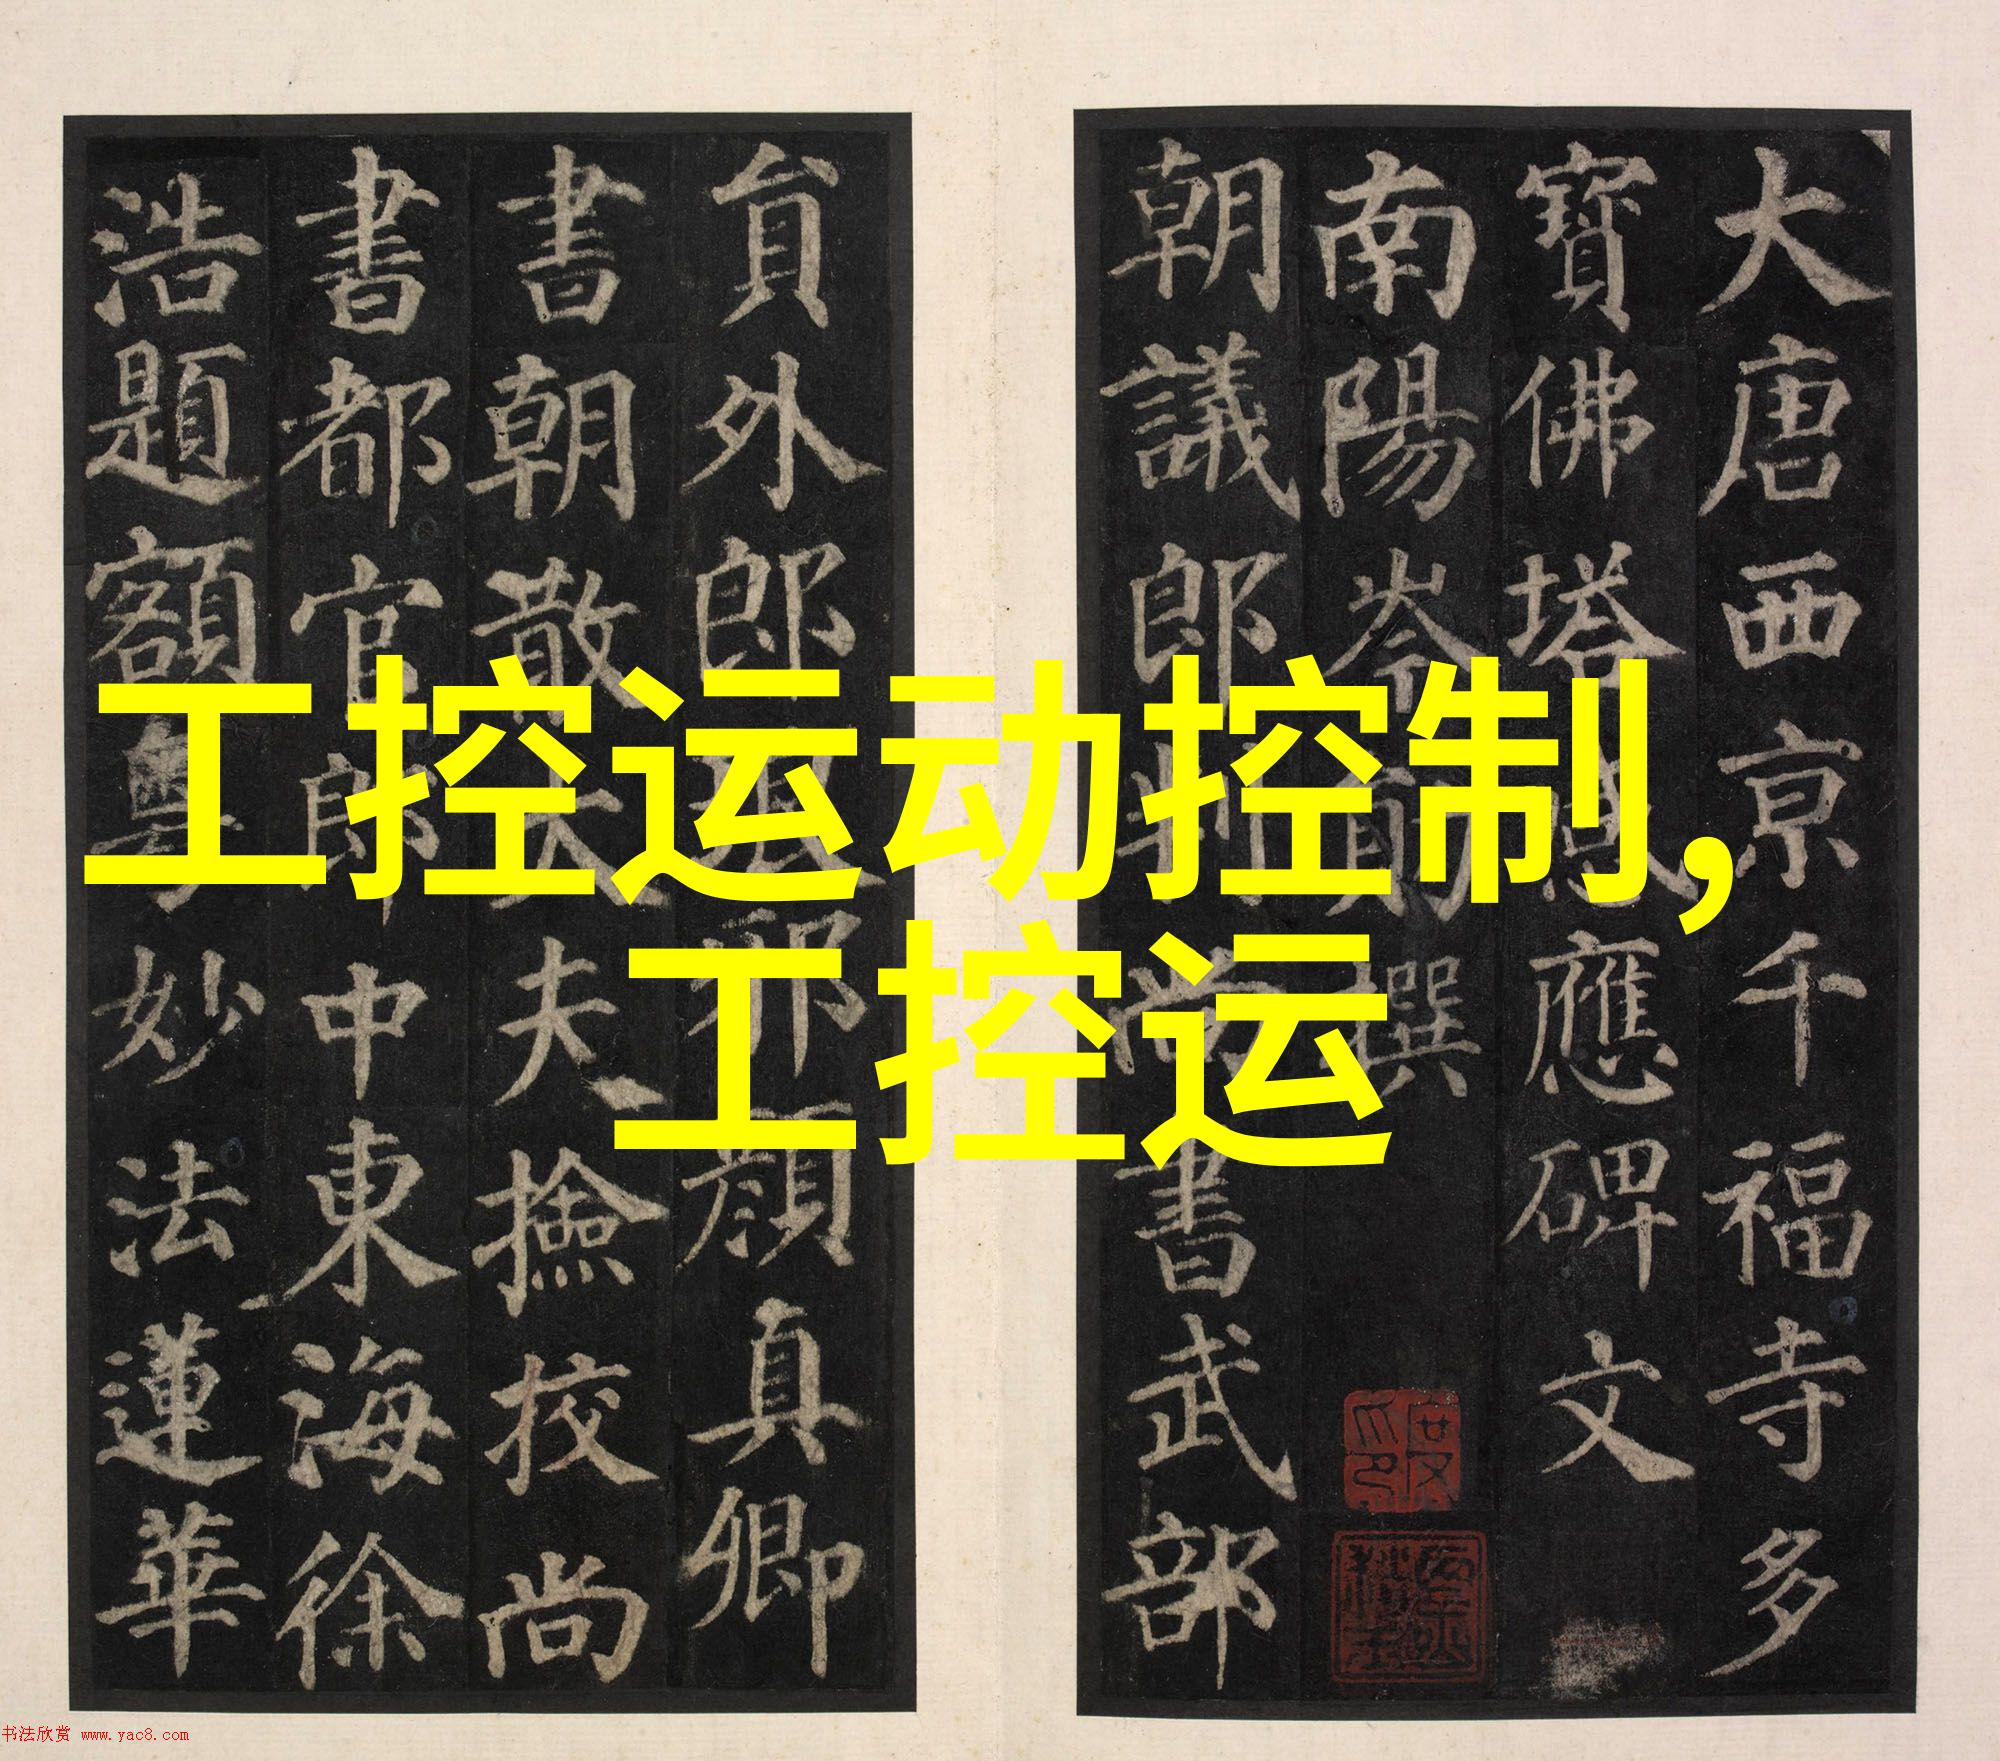 工控运动控制,
工控运
大唐西京千福寺多
寶佛塔感應碑文
南陽岑勛撰
朝議郎判尚書武部
貟外郎琅邪顏真卿
書朝散大夫撿校尚
書都官郎中東海徐
浩題額粤妙法蓮華
书法欣赏 www.yac8.com